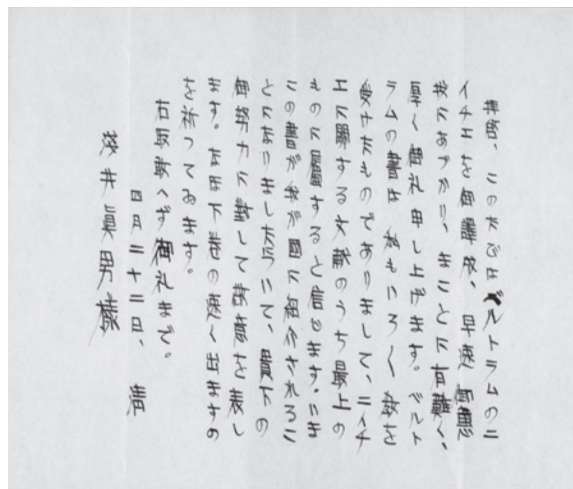 拝啓、このたびはベルトラムのニ
イチエを御譯成、早速御恵
投にあづかり、まことに有難く、
厚く御礼申し上げます。ベルト
ラムの書は私もいろ〱教を
受けたものでありまして、ニイチ
エに関する文献のうち最上の
ものに属すると信じます。いま
この書が我が国に紹介されるこ
とになりましたについて、貴下の
御努力に對して敬意を表し
ます。なほ下巻の速く出ますの
を祈つてゐます。
右取敢へず御礼まで。
四月二十二日、 清
浅井眞男樣